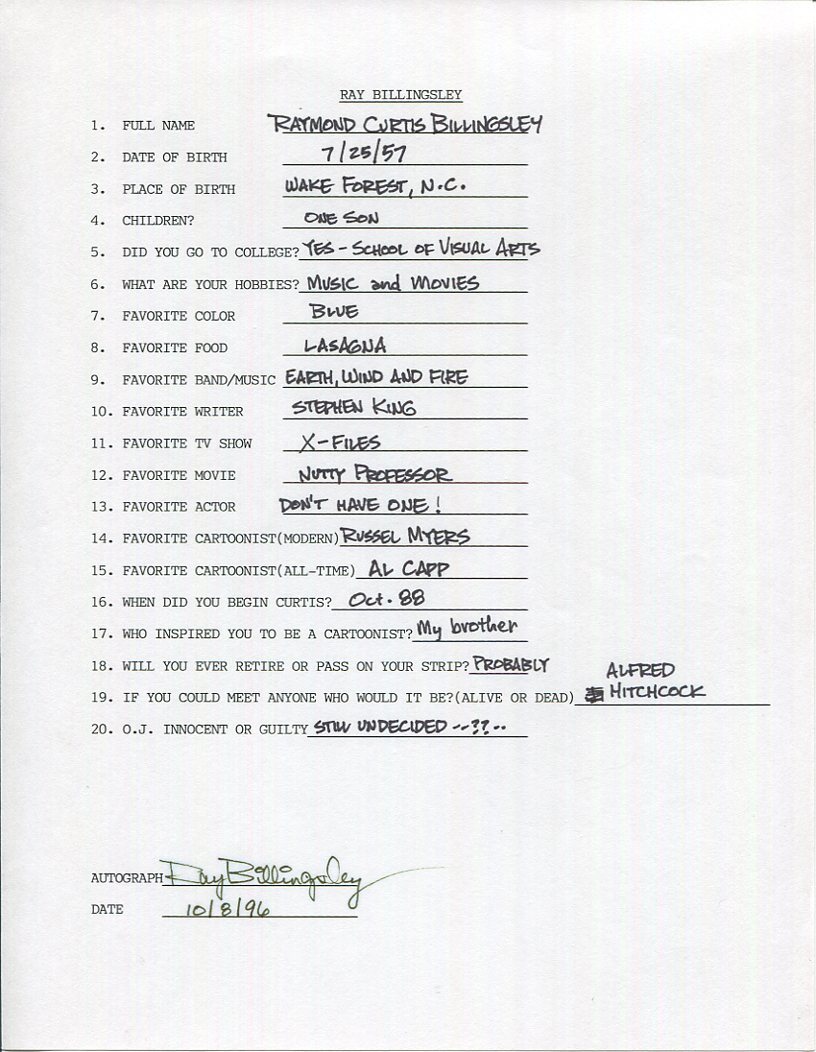 RAY BILLINGSLEY
1. FULL NAME RAYMOND CURTIS BILLINGSLEY
2. DATE OF BIRTH 7/25/57
3. PLACE OF BIRTH WAKE FOREST, N.C.
4. CHILDREN? ONE SON
5. DID YOU GO TO COLLEGE? YES - SCHOOL OF VISUAL ARTS
6. WHAT ARE YOUR HOBBIES? MUSIC and MOVIES
7. FAVORITE COLOR BLUE
8. FAVORITE FOOD LASAGNA
9. FAVORITE BAND/MUSIC EARTH, WIND AND FIRE
10. FAVORITE WRITER STEPHEN KING
11. FAVORITE TV SHOW X-FILES
12. FAVORITE MOVIE NUTTY PROFESSOR
13. FAVORITE ACTOR DON'T HAVE ONE!
14. FAVORITE CARTOONIST(MODERN) RUSSEL MYERS
15. FAVORITE CARTOONIST(ALL-TIME) AL CAPP
16. WHEN DID YOU BEGIN CURTIS? Oct. 88
17. WHO INSPIRED YOU TO BE A CARTOONIST? My brother
18. WILL YOU EVER RETIRE OR PASS ON YOUR STRIP? PROBABLY
19. IF YOU COULD MEET ANYONE WHO WOULD IT BE?(ALIVE OR DEAD) ALFRED
HITCHCOCK
20. O.J. INNOCENT OR GUILTY STILL UNDECIDED --??--
AUTOGRAPH Ray Billingsley
DATE 10/8/96